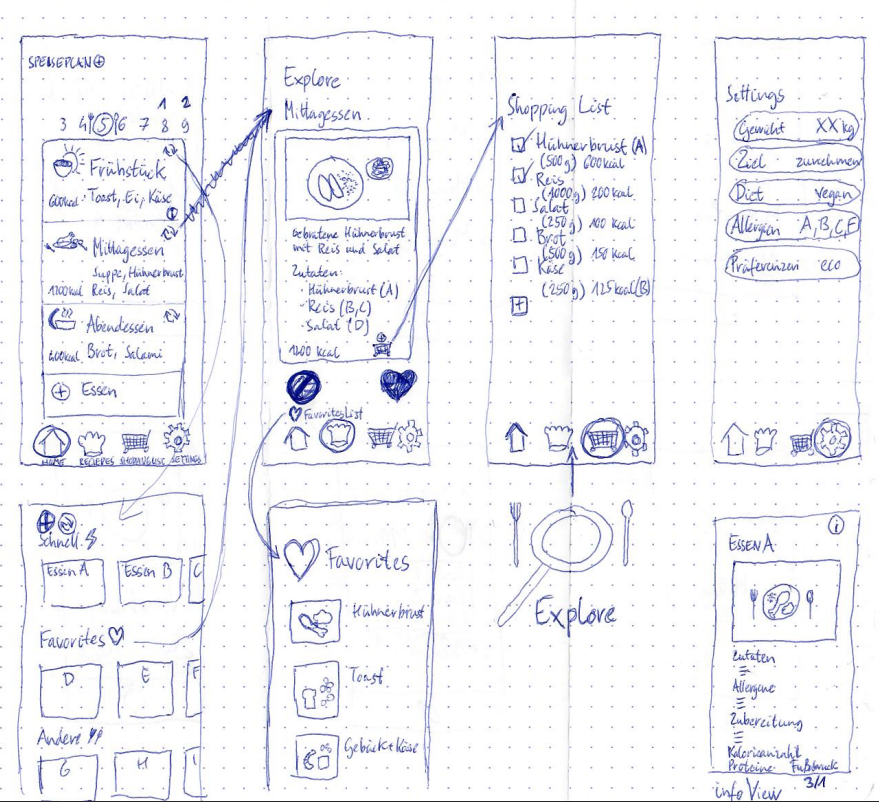 SPEISEPLAN
1 2
3 4 5 6 7 8 9
Frühstück
600kcal Toast, Ei, Käse
Mittagessen
Suppe, Hühnerbrust
1200kcal Reis, Salat
Abendessen
600kcal Brot, Salami
Essen
HOME RECIEPES SHOPPINGLIST SETTINGS
Explore
Mittagessen
Gebratene Hühnerbrust
mit Reis und Salat
Zutaten:
· Hühnerbrust (A)
· Reis (B,C)
· Salat (D)
1200 kcal
Favorites List
Shopping List
Hühnerbrust (A)
(500g) 600kcal
Reis
(1000g) 200 kcal
Salat
(250g) 100 kcal
Brot
(500g) 150 kcal
Käse
(250g) 125kcal (B)
Settings
Gewicht XX kg
Ziel zunehmen
Diet vegan
Allergien A,B,C,F
Präferenzen eco
Schnell
Essen A Essen B C
Favorites
D E F
Andere
G H I
Favorites
Hühnerbrust
Toast
Gebäck+Käse
Explore
i
ESSEN A
Zutaten
Allergene
Zubereitung
Kalorienanzahl
Proteine Fußabdruck
info View 3/1